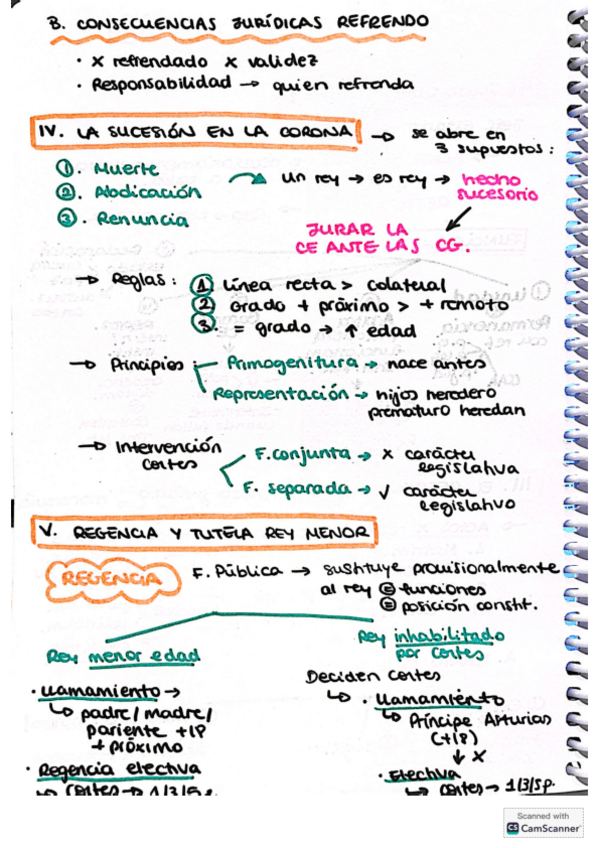 B. CONSECUENCIAS JURÍDICAS REFRENDO
· x refrendado x validez
· Responsabilidad → quien refrenda
IV. LA SUCESIÓN EN LA CORONA → se abre en
3 supuestos:
1. Muerte
2. Abdicación
3. Renuncia
un rey → es rey → hecho
sucesorio
JURAR LA
CE ANTE LAS CG.
→ Reglas: 1 Línea recta > colateral
2 Grado + próximo > + remoto
3. = grado → ↑ edad
→ Principios: Primogenitura → nace antes
Representación → hijos heredero
prematuro heredan
→ Intervención
Cortes
F. conjunta → x carácter
legislativa
F. separada → √ carácter
legislativo
V. REGENCIA Y TUTELA REY MENOR
REGENCIA
F. Pública → sustituye provisionalmente
al rey = funciones
= posición constit.
Rey menor edad
· Llamamiento →
↳ padre/madre/
pariente +18
+ próximo
· Regencia electiva
↳ Cortes → 1/3/5p.
Rey inhabilitado
por Cortes
Deciden Cortes
↳ · Llamamiento
↳ Príncipe Asturias
(+18)
↓ x
· Electiva
↳ Cortes → 1/3/5p.
Scanned with
CS CamScanner